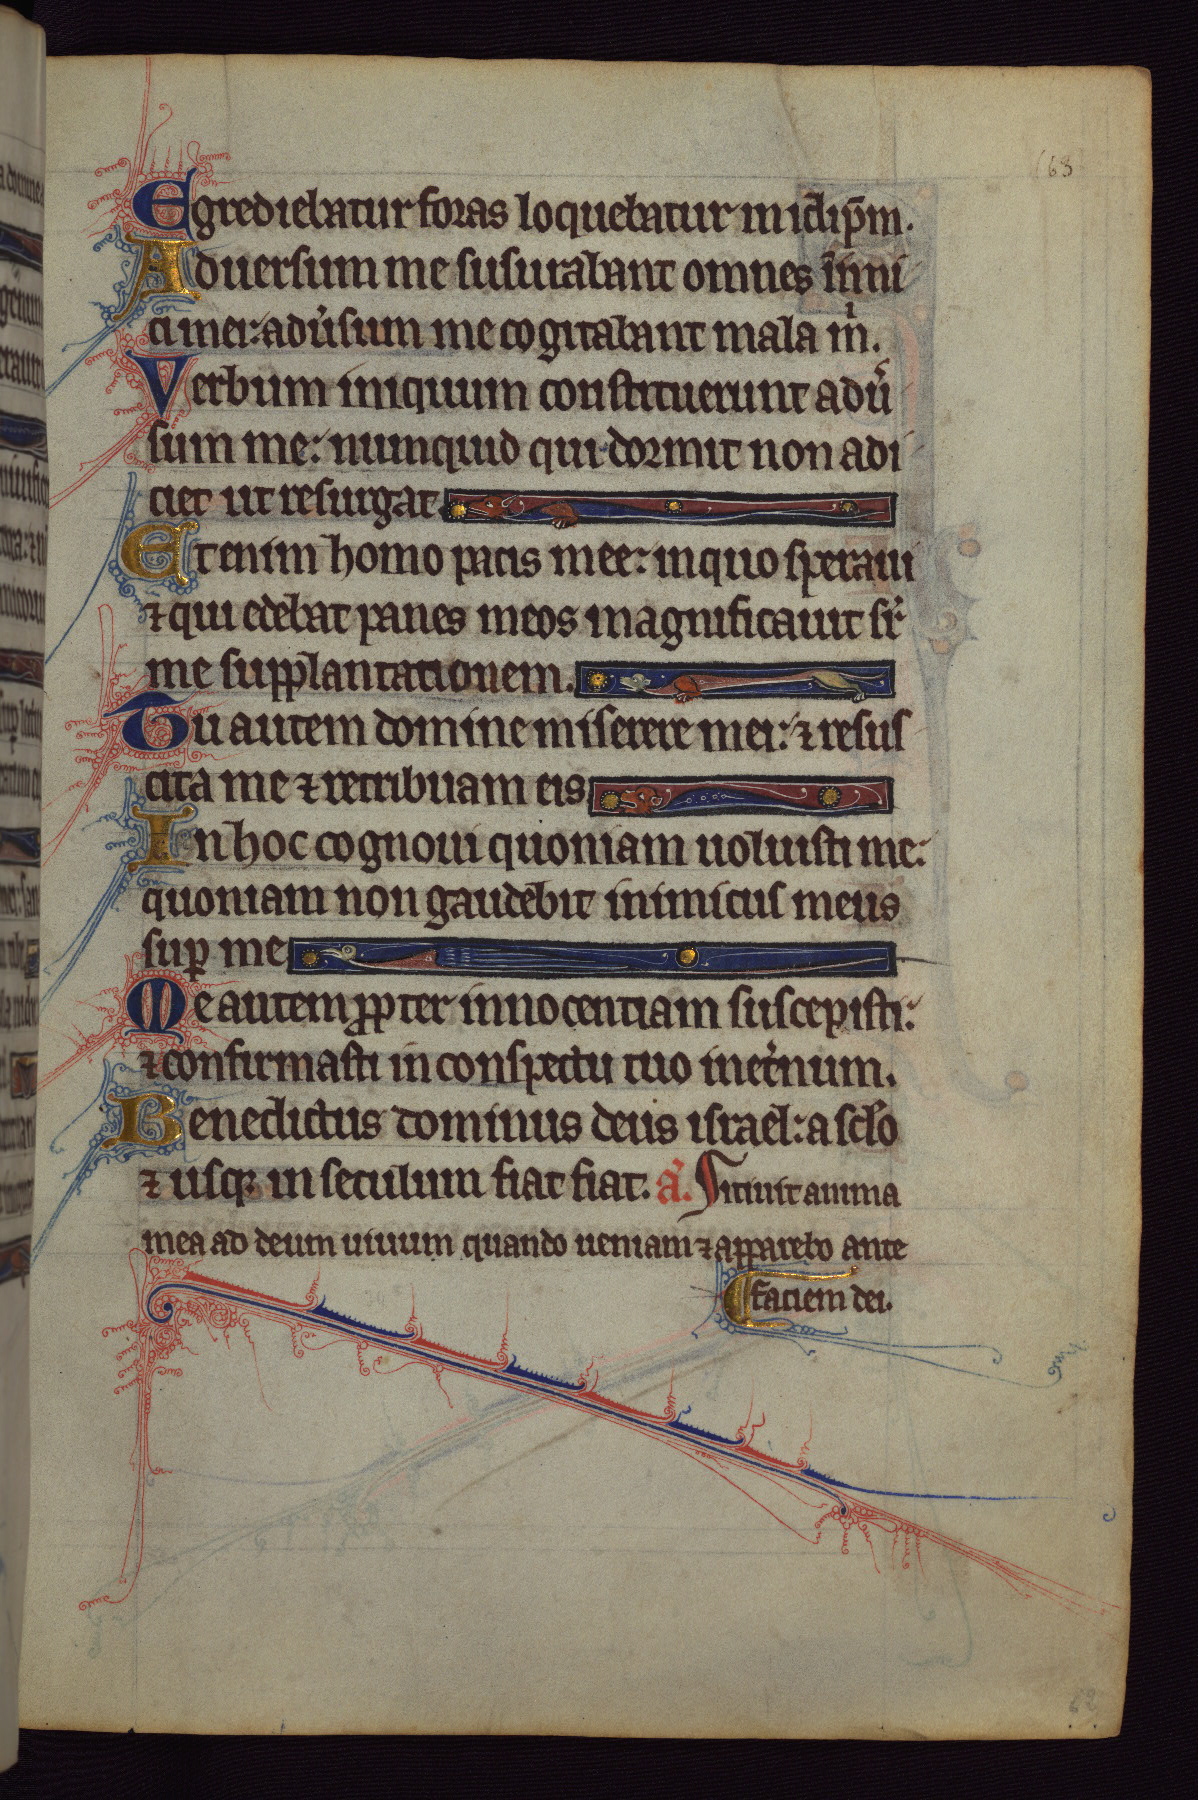 68
Egrediebatur foras loquebatur in idip̄m.
Aduersum me susurabant omnes inimi
ci mei: adu̾sum me cogitabant mala m̍.
Verbum iniquum constituerunt adu̾
sum me: numquid qui dormit non adi
ciet ut resurgat
Etenim homo pacis mee: in quo speraui
⁊ qui edebat panes meos magnificauit sr̍
me supplantationem.
Tu autem domine miserere mei: ⁊ resus
cita me ⁊ retribuam eis
In hoc cognoui quoniam uoluisti me:
quoniam non gaudebit inimicus meus
suꝑ me
Me autem ꝓpter innocentiam suscepisti:
⁊ confirmasti in conspectu tuo inet̾num.
Benedictus dominus deus israel: a sc̄lo
⁊ usqꝫ in seculum fiat fiat. a̾. Sitiuit anima
mea ad deum uiuum quando ueniam ⁊ apparebo ante
faciem dei.